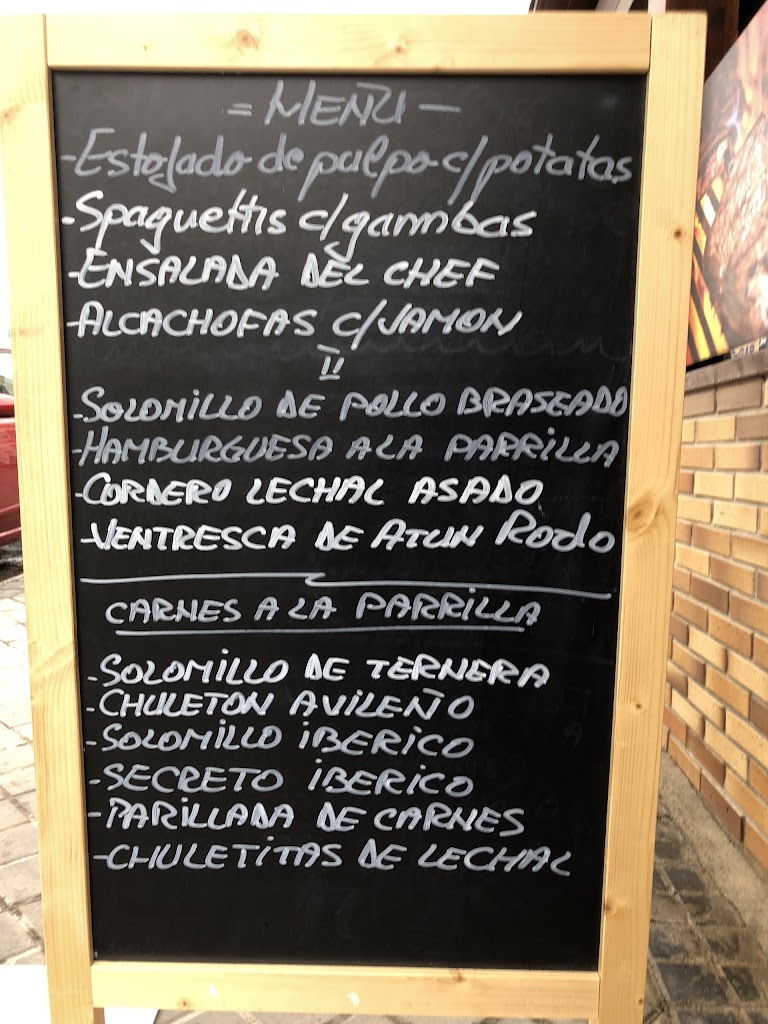 = MENU -
- Estofado de pulpo c/ potatas
- Spaguettis c/ gambas
- ENSALADA DEL CHEF
- ALCACHOFAS C/ JAMON
II
- SOLOMILLO DE POLLO BRASEADO
- HAMBURGUESA A LA PARRILLA
- CORDERO LECHAL ASADO
- VENTRESCA DE ATUN Rodo
CARNES A LA PARRILLA
- SOLOMILLO DE TERNERA
- CHULETON AVILEÑO
- SOLOMILLO IBERICO
- SECRETO IBERICO
- PARILLADA DE CARNES
- CHULETITAS DE LECHAL